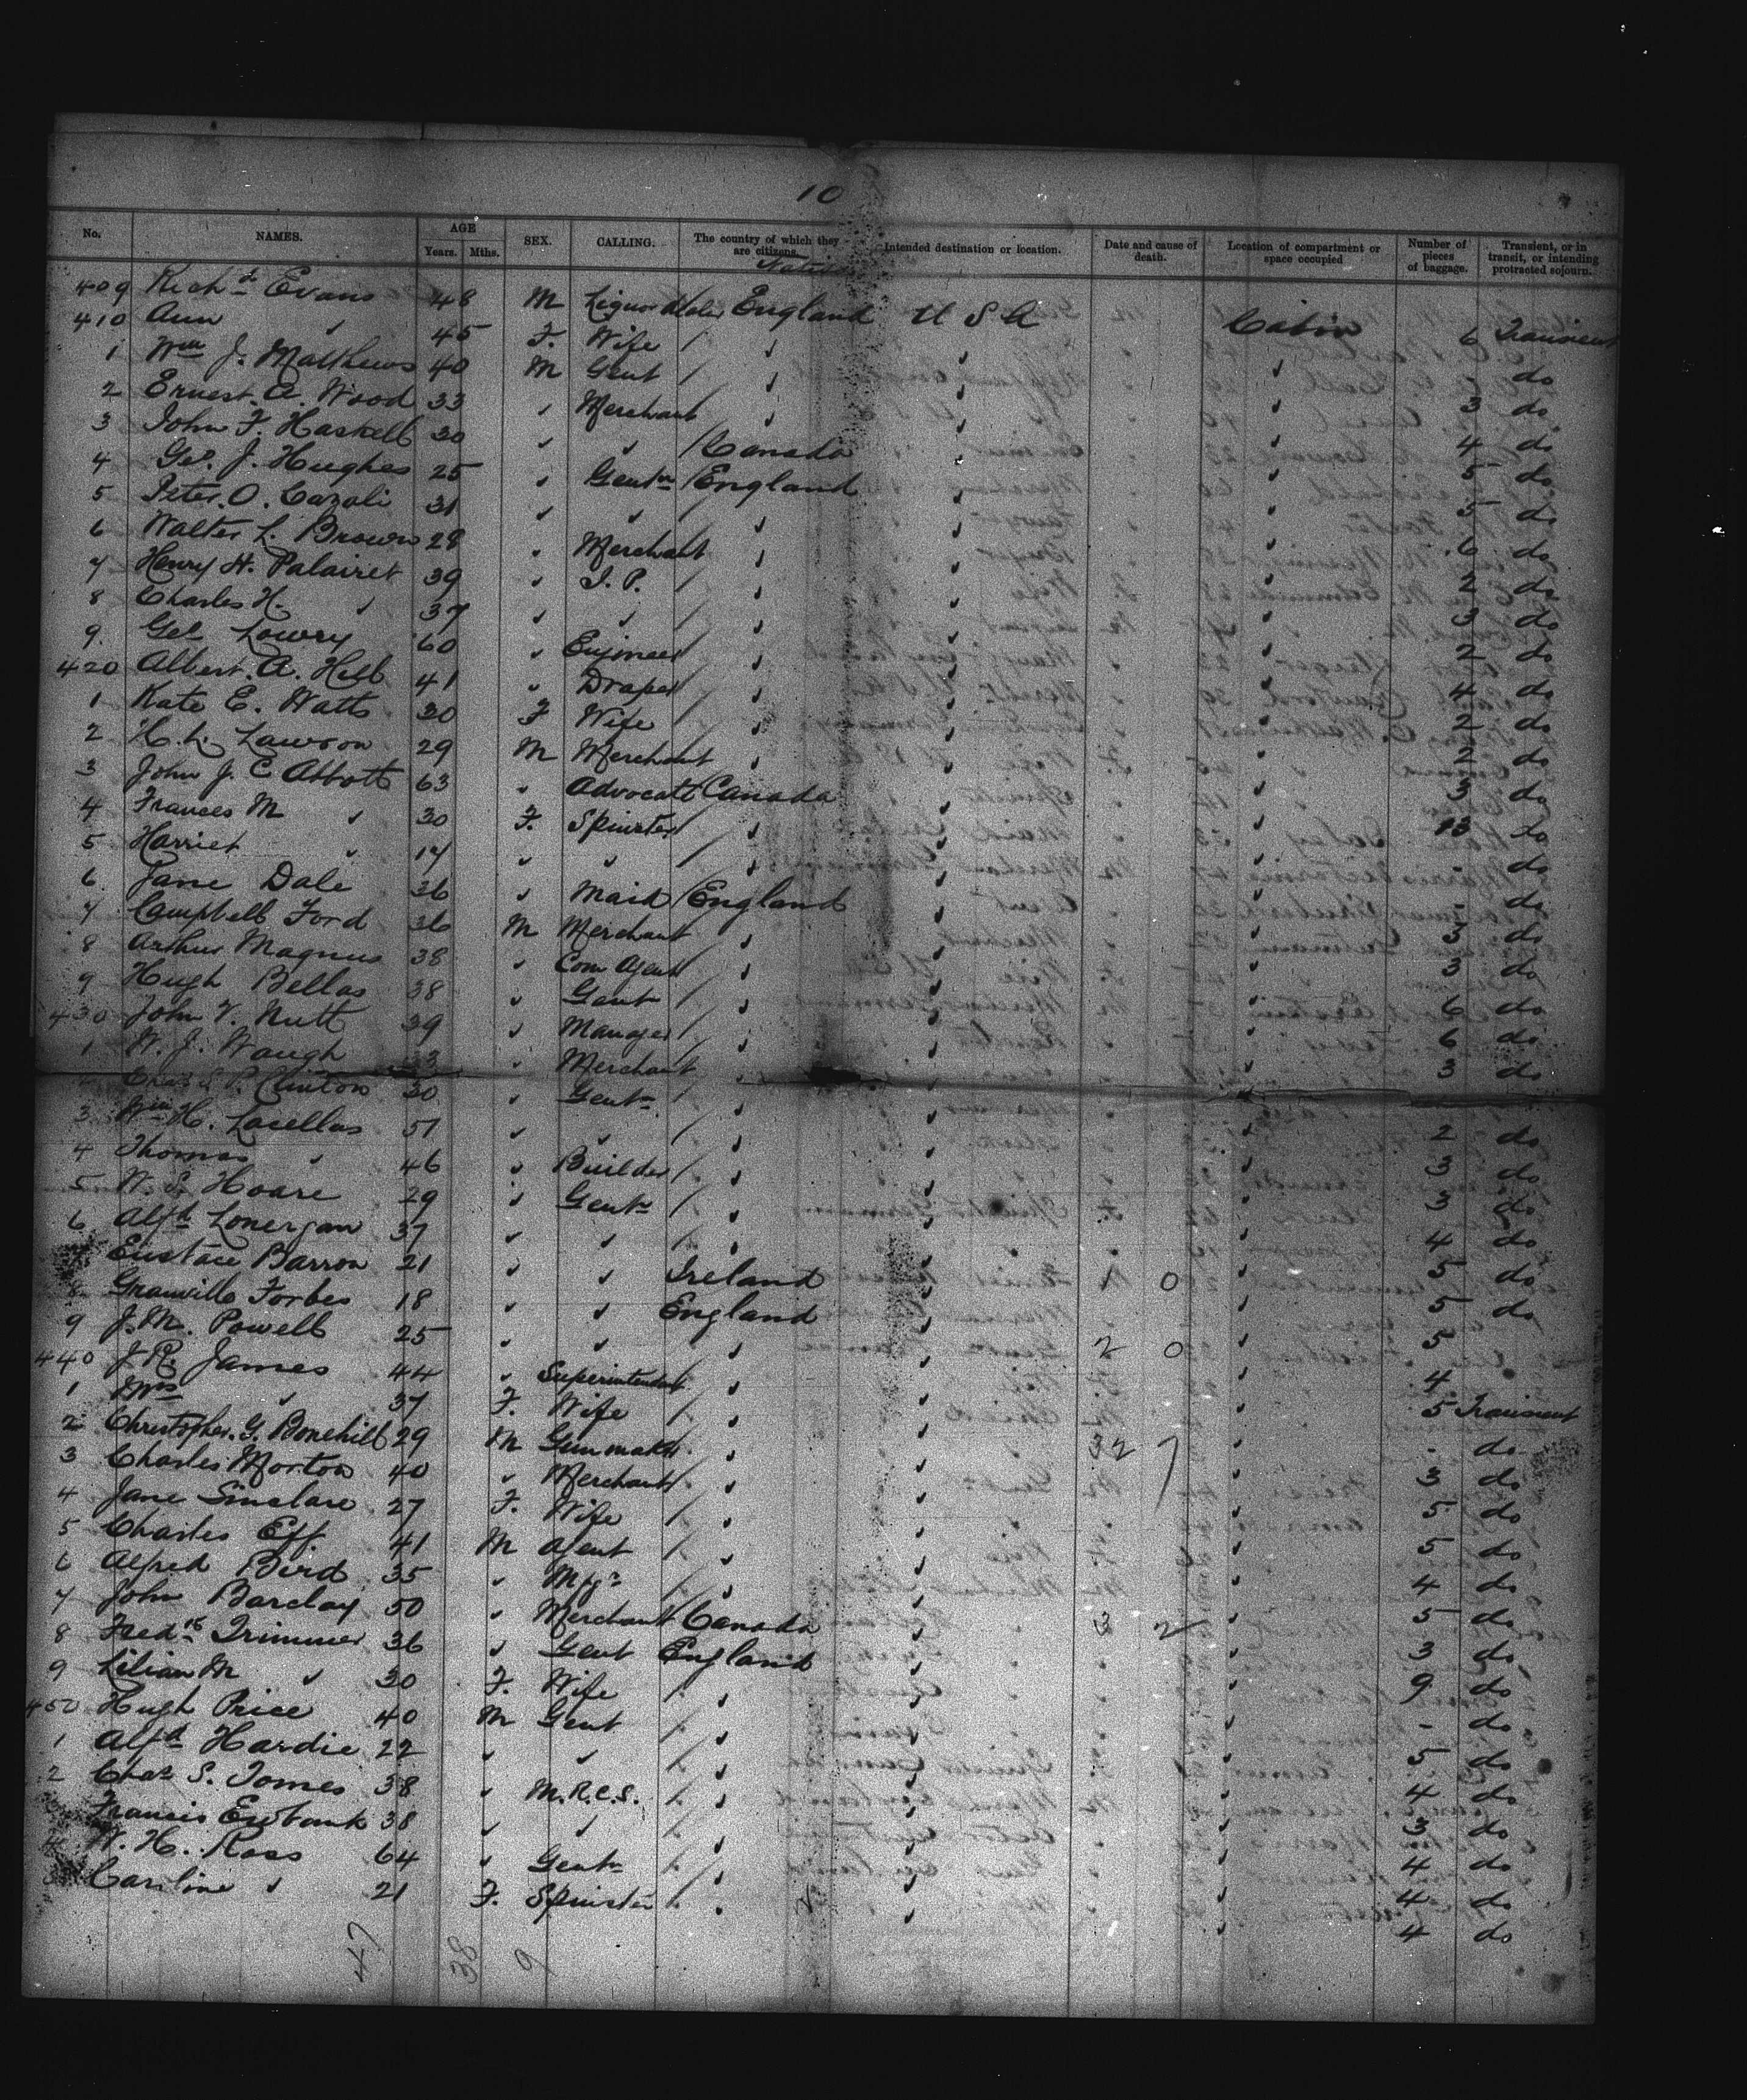 10
No. NAMES. AGE Years. Mths. SEX. CALLING. The country of which they are citizens. Intended destination or location. Date and cause of death. Location of compartment or space occupied Number of pieces of baggage. Transient, or in transit, or intending protracted sojourn.
409 Richd Evans 48 M Liquor England U S A Cabin 6 Transient
410 Ann " 45 F. Wife / " " " do
1 Wm J. Matthews 40 M Gent / " " " 3 do
2 Ernest. A. Wood 33 " Merchant / " " " 4 do
3 John F. Haskell 30 " " / Canada " " 5 do
4 Geo. J. Hughes 25 " Gentn / England " " 5 do
5 Peter. O. Cazali 31 " " / " " " 6 do
6 Walter L. Brown 28 " Merchant / " " " 2 do
7 Henry H. Palairet 39 " J. P. / " " " 3 do
8 Charles H. " 37 " " / " " " 2 do
9. Gel Lowry 60 " Engineer / " " " 4 do
420 Albert. A. Hill 41 " Draper / " " " 2 do
1 Kate E. Watts 30 F Wife / " " " 2 do
2 H. L. Lawson 29 M Merchant / " " " 3 do
3 John J. C Abbott 63 " Advocate Canada " " 13 do
4 Frances M " 30 F. Spinster / " " " - do
5 Harriet " 17 " " / " " " - do
6. Jane Dale 36 " Maid / England " " 3 do
7 Campbell Ford 36 M Merchant / " " " 3 do
8 Arthur Magnus 38 " Com Agent / " " " 6 do
9 Hugh Bellas 38 " Gent / " " " 6 do
430 John V. Nutt 39 " Manager / " " " 3 do
1 W. J. Waugh 33 " Merchant / " " "
P. Clinton 30 " Gentn / " " " 2 do
3 Wm H. Lacellas 51 " " / " " " 3 do
4 Thomas " 46 " Builder / " " " 3 do
5 W. S. Hoare 29 " Gentn / " " " 4 do
6 Alfd Lonergan 37 " " / " " " 5 do
Eustace Barron 21 " " Ireland " 1 0 " 5 do
8 Granville Forbes 18 " " England " " 5
9 J. M. Powell 25 " " " " 2 0 " 4
440 J. R. James 44 " Superintendent / " " " 5 Transient
1 Mrs " 37 F. Wife / " " " - do
2 Christopher. G. Bonehill 29 M Gunmaker / " " 32 7 " 3 do
3 Charles Morton 40 " Merchant / " " " 5 do
4 Jane Sinclare 27 F. Wife / " " " 5 do
5 Charles Eff 41 M Agent / " " " 4 do
6 Alfred Bird 35 " Mfgr / " " " 5 do
7 John Barclay 50 " Merchant Canada " 3 2 " 3 do
8 Fredk Trimmer 36 " Gent England " " 9 do
9 Lilian M " 30 F. Wife / " " " - do
450 Hugh Price 40 M Gent / " " " 5 do
1 Alfd Hardie 22 " " / " " " 4 do
2 Chas S. Tomes 38 " M.R.C.S. / " " " 3 do
Francis Ewbank 38 " " / " " " 4 do
4 W. H. Ross 64 " Gentn / " " " 4 do
Caroline " 21 F. Spinster / " " " 4 do
47 38 9